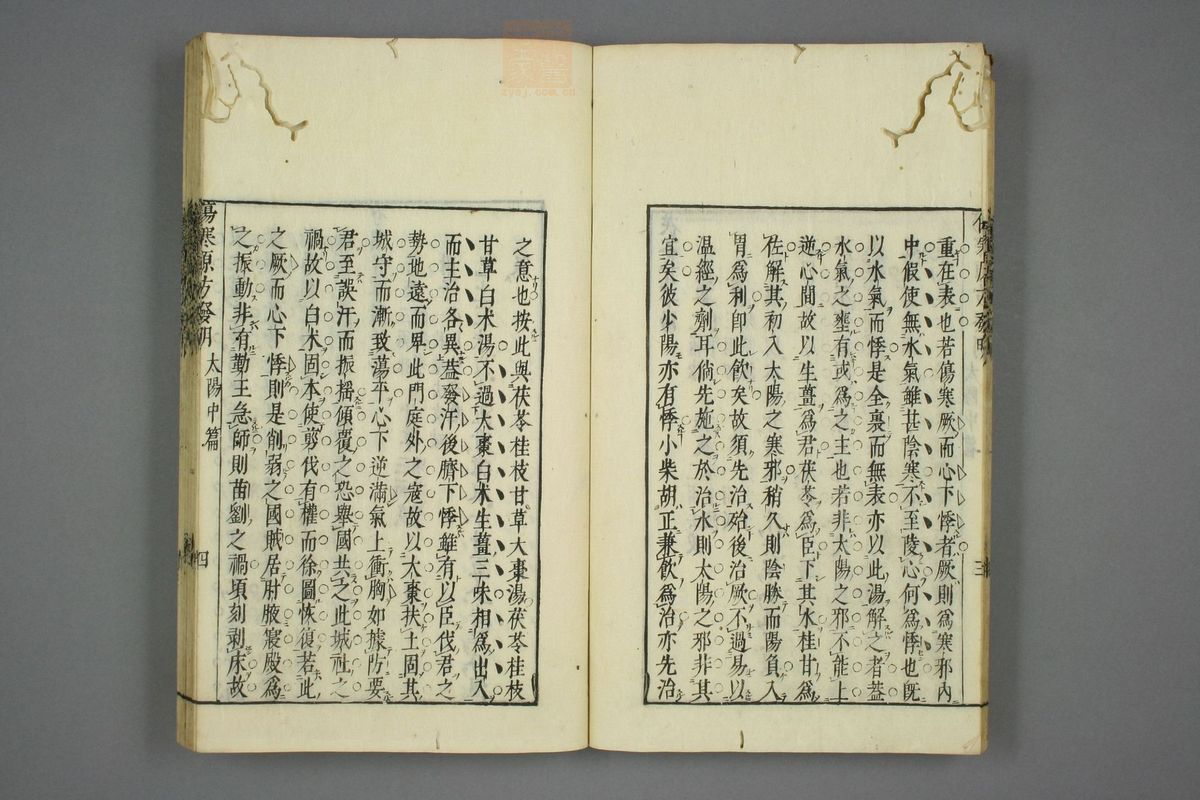 重在表也若傷寒厥而心下悸者厥則爲寒邪內
中假使無水氣雖甚陰寒不至陵心何爲悸也既
以水氣而悸是全裏而無表亦以此湯解之者葢
水氣之壅有或爲之主也若非太陽之邪不能上
逆心間故以生薑爲君茯苓爲臣下其水桂甘爲
佐解其初入太陽之寒邪稍久則陰勝而陽負入
胃爲利卽此飲矣故須先治殆後治厥不過易以
溫經之劑耳倘先施之於治水則太陽之邪非其
宜矣彼少陽亦有悸小柴胡正兼飲爲治亦先治
三
之意也按此與茯苓桂枝甘草大棗湯茯苓桂枝
甘草白朮湯不過大棗白朮生薑三味相爲出入
而主治各異葢發汗後臍下悸雖有以臣伐君之
勢地遠而卑此門庭外之寇故以大棗扶土固其
城守而漸致蕩平心下逆滿氣上衝胸如據防要
君至誤汗而振搖傾覆之恐舉國共之此城社之
禍故以白朮固本使剪伐有權而徐圖恢復若此
之厥而心下悸則是削弱之國賊居肘腋寢殿爲
之振動非有勤王急師則苗劉之禍頃刻剥床故
傷寒原方發明 太陽中篇 四
zyej.com.cn